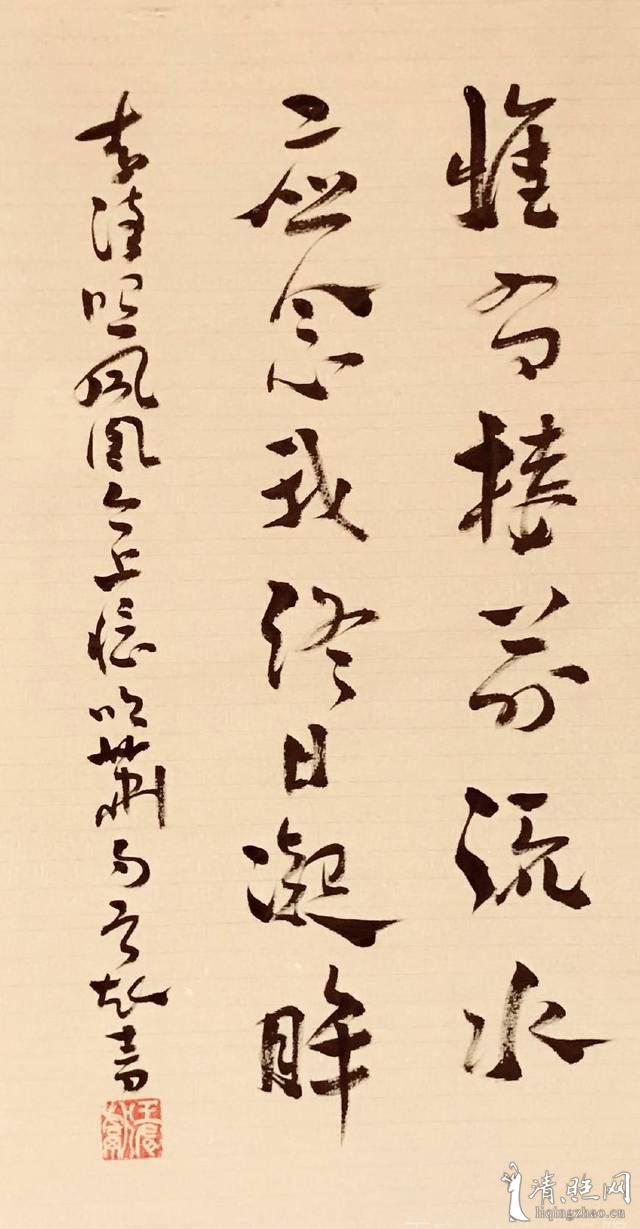 惟有楼前流水
应念我终日凝眸
李清照凤凰台上忆吹箫句
清照网
liqingzhao.cn